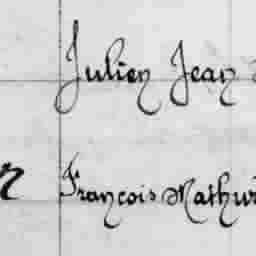 Julien Jean
François Mathur